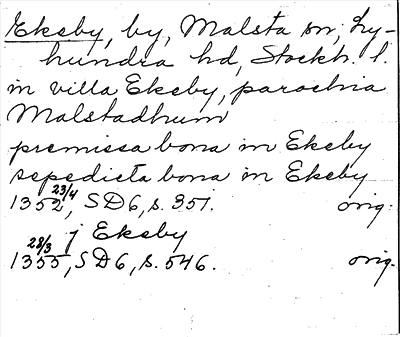 Ekeby, by, Malsta sn, Ly-
hundra hd, Stockh. l.
in villa Ekeby, parochia
Malstadhum
premissa bona in Ekeby
sepedicta bona in Ekeby
1352 23/4, SD6, s. 351. orig.
j Ekeby
1355 28/3, SD6, s. 546. orig.